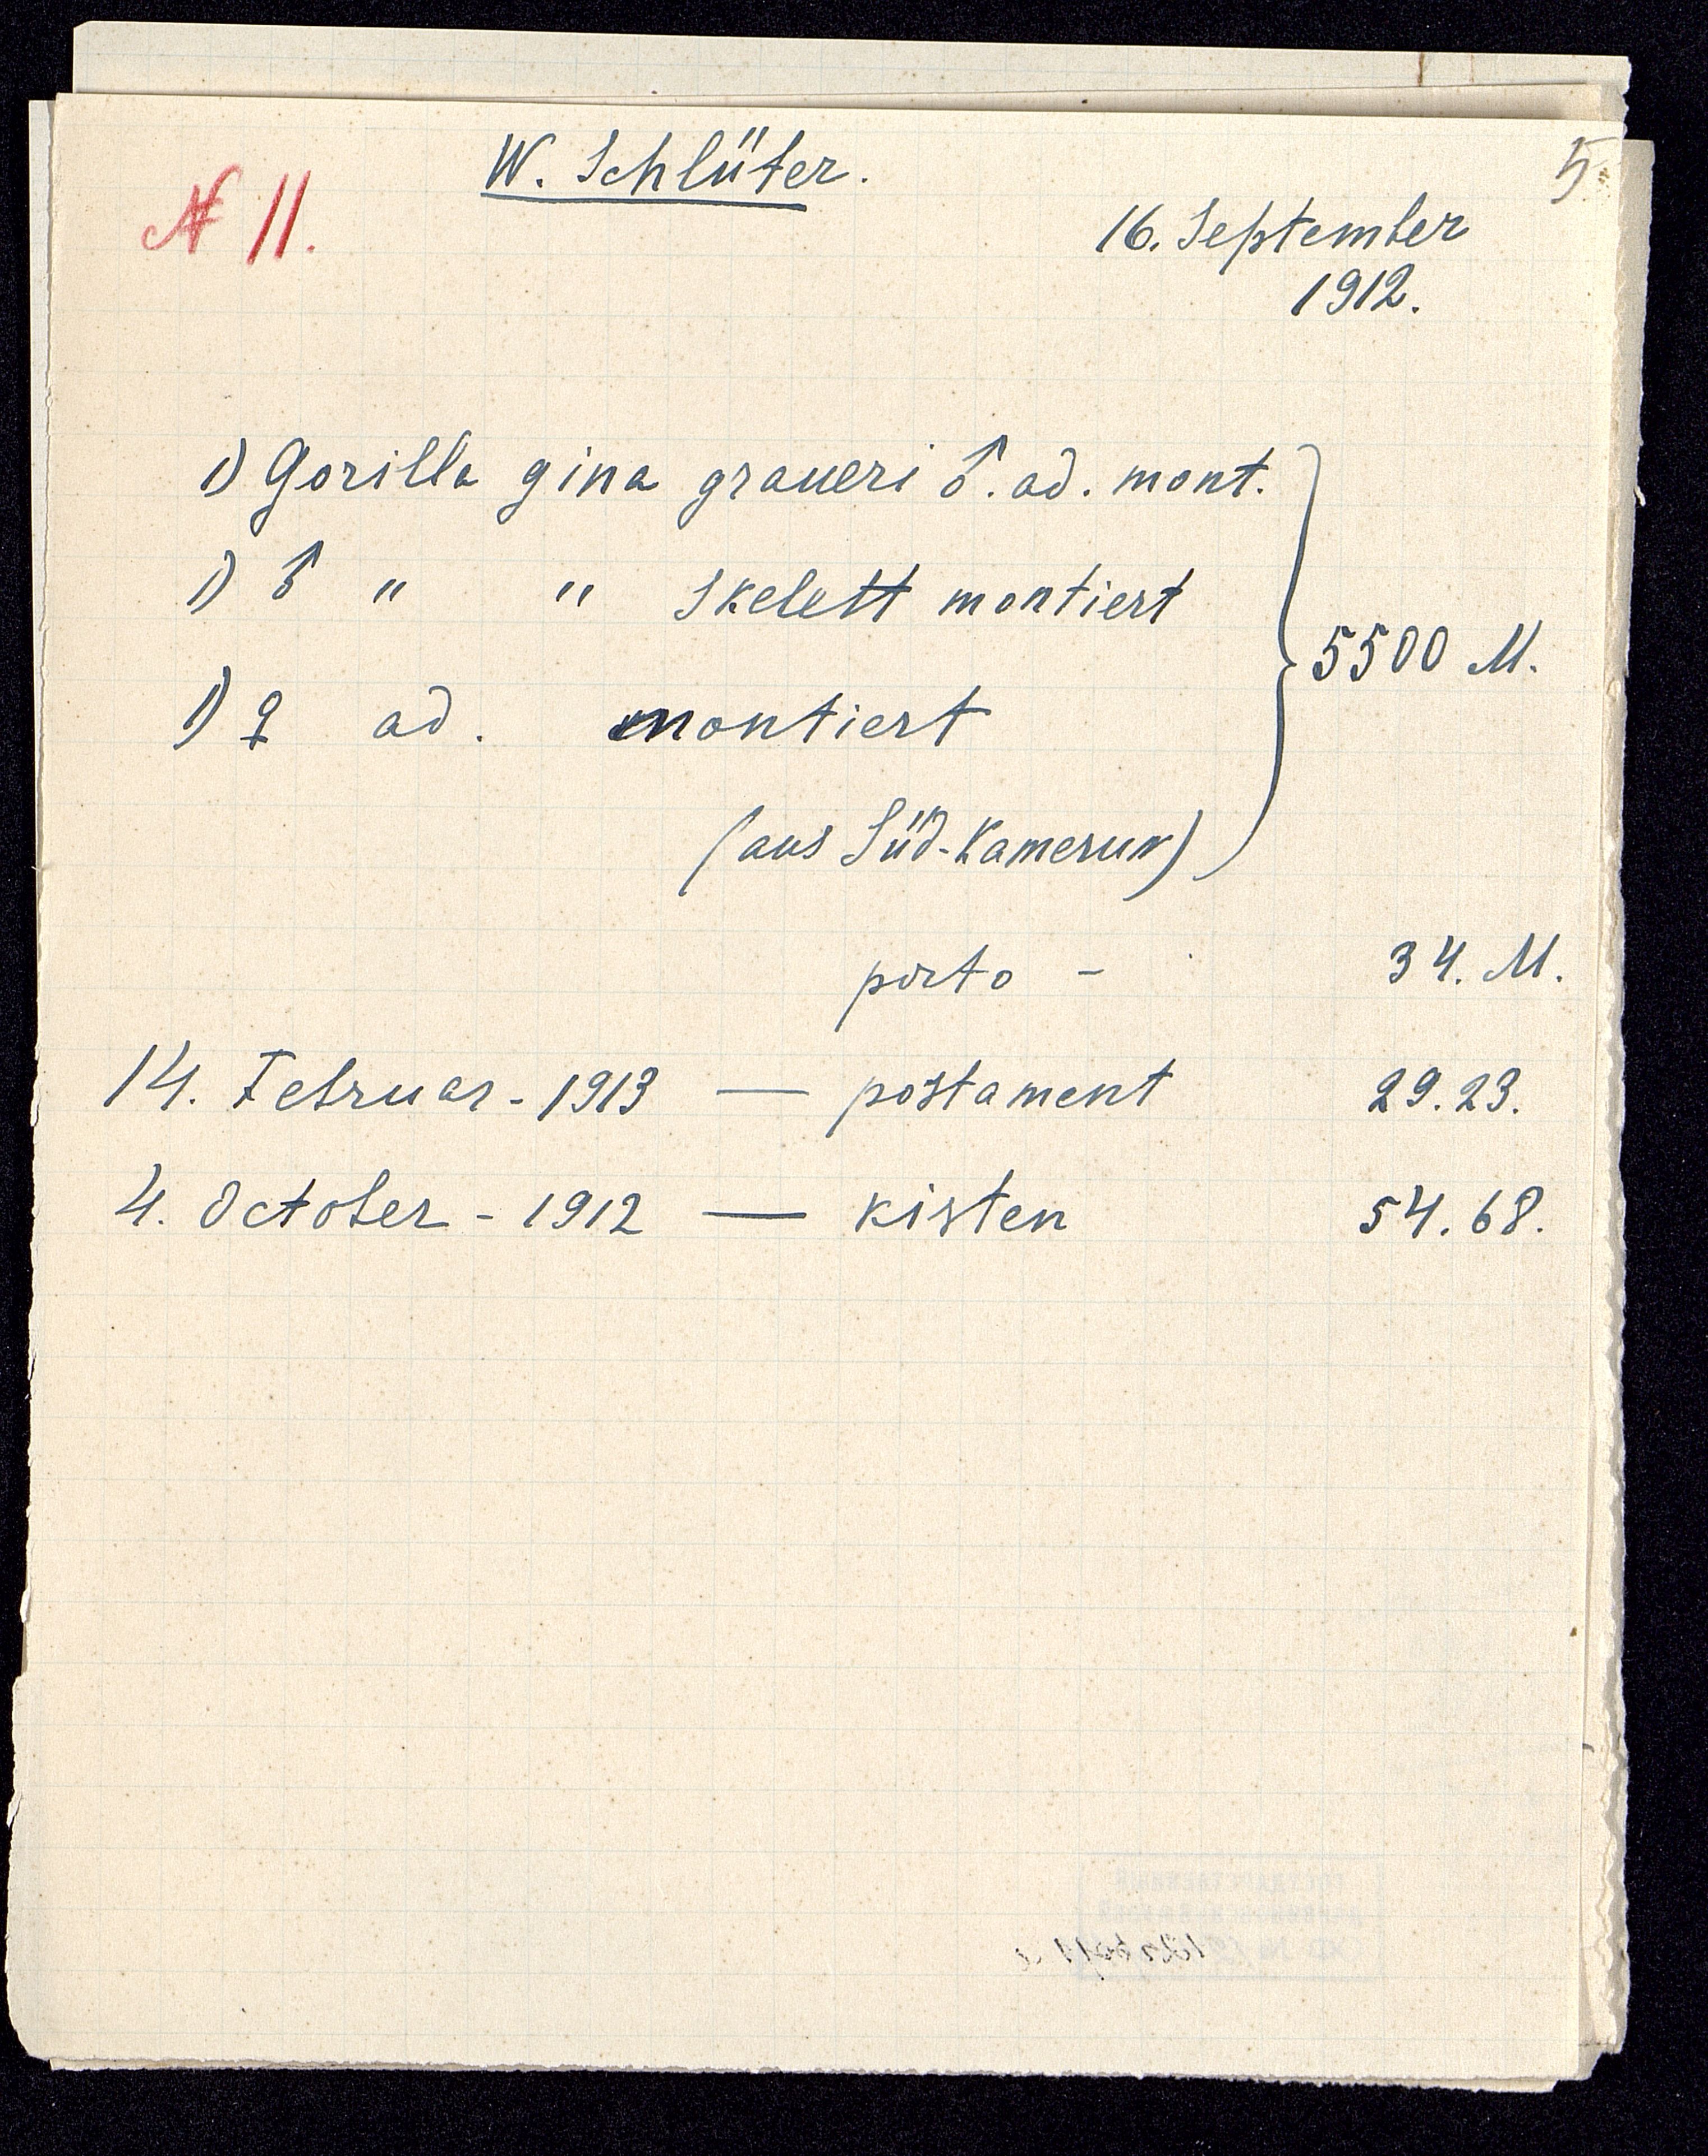 5
W. Schlüter.
№ 11.
16. September
1912.
1) Gorilla gina graueri ♂. ad. mont.
1) ♂ " " Skelett montiert
5500 M.
1) ♀ ad. montiert
(aus Süd-Kamerun)
porto - 34. M.
14. Februar - 1913 — postament 29.23.
4. October - 1912 — kisten 54.68.